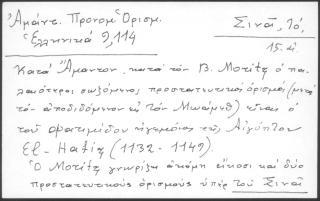 Ἀμάντ. Προνομ. Ὁρισμ.
Ἑλληνικά 9, 114
Σινᾶ, Τό,
15. 4.
Κατά Ἄμαντον, κατά τόν B. Μοτίτς ὁ πα-
λαιότερος σωζόμενος προστατευτικός ὁρισμός (μετά
τόν ἀποδιδόμενον εἰς τόν Μωάμεθ) εἶναι ὁ
τοῦ φατιμίδου ἡγεμόνος τῆς Αἰγύπτου
El-Hafiz (1132-1149).
Ὁ Μοτίτς γνωρίζει ἀκόμη εἴκοσι καί δύο
προστατευτικούς ὁρισμούς ὑπέρ τοῦ Σινᾶ